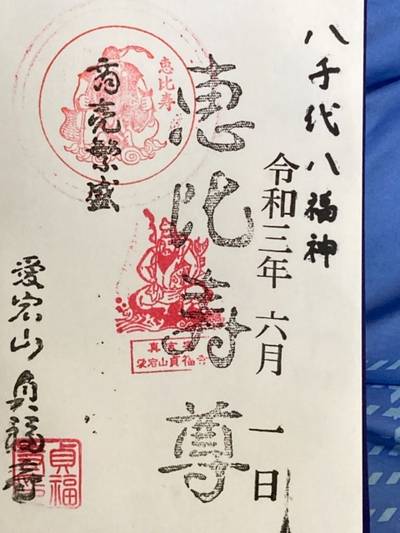 八千代八福神
令和三年 六月 一日
恵比寿尊
恵比寿
商売繁盛
愛宕山貞福寺
愛宕山 貞福寺
貞福